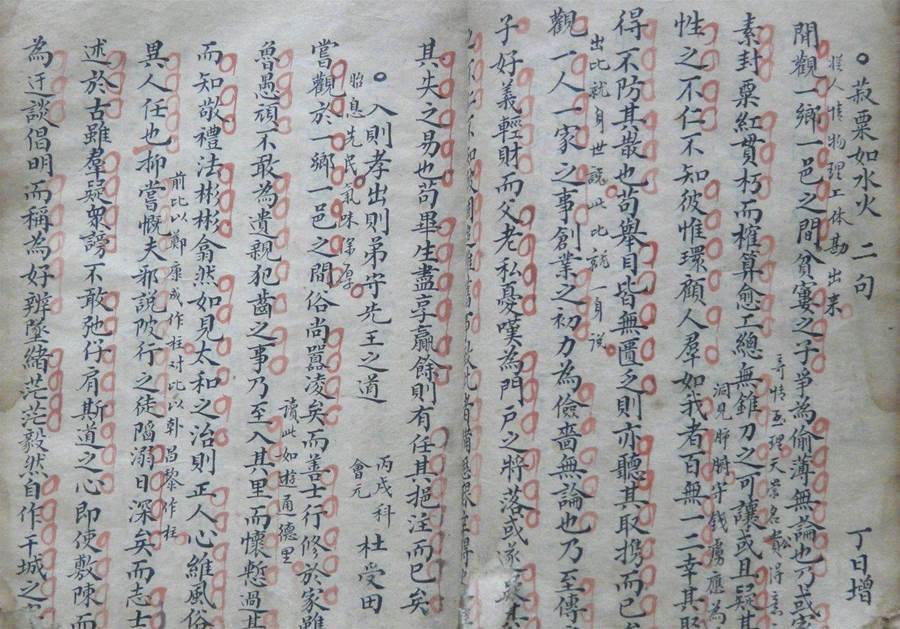 菽粟如水火 二句 丁日增
從人情物理工休勘出来
閒觀一鄉一邑之間貧窶之子爭為偷薄無論也乃或
奇情至理天崇名
素封粟紅貫朽而榷算愈工總無錐刀之可讓或且疑其
洞見肺腑守錢虜應為
性之不仁不知彼惟環顧人羣如我者百無一二幸其
得不防其散也苟舉目皆無匱之則亦聽其取攜而已
出比就身世說此比就一身說
觀一人一家之事創業之初力為儉嗇無論也乃至傳
子好義輕財而父老私憂嘆為門戶之將落或
其失之易也苟畢生盡享贏餘則有任其挹注而已矣
入則孝出則弟守先王之道 丙戌科會元 杜受田
胎息先民氣味深厚
嘗觀於一鄉一邑之間俗尚囂凌矣而善士行修於家雖
讀此如遊通德里
魯愚頑不敢為遺親犯齒之事乃至入其里而懷慙過其
而知敬禮法彬彬翕然如見太和之治則正人心維風俗
前比以鄭康成作柱對比以韓昌黎作柱
異人任也抑嘗慨夫邪說陂行之徒陷溺日深矣而志士
述於古雖羣疑眾謗不敢弛仔肩斯道之心即使敷陳而
為迂談倡明而稱為好辨墜緒茫茫毅然自作干城之